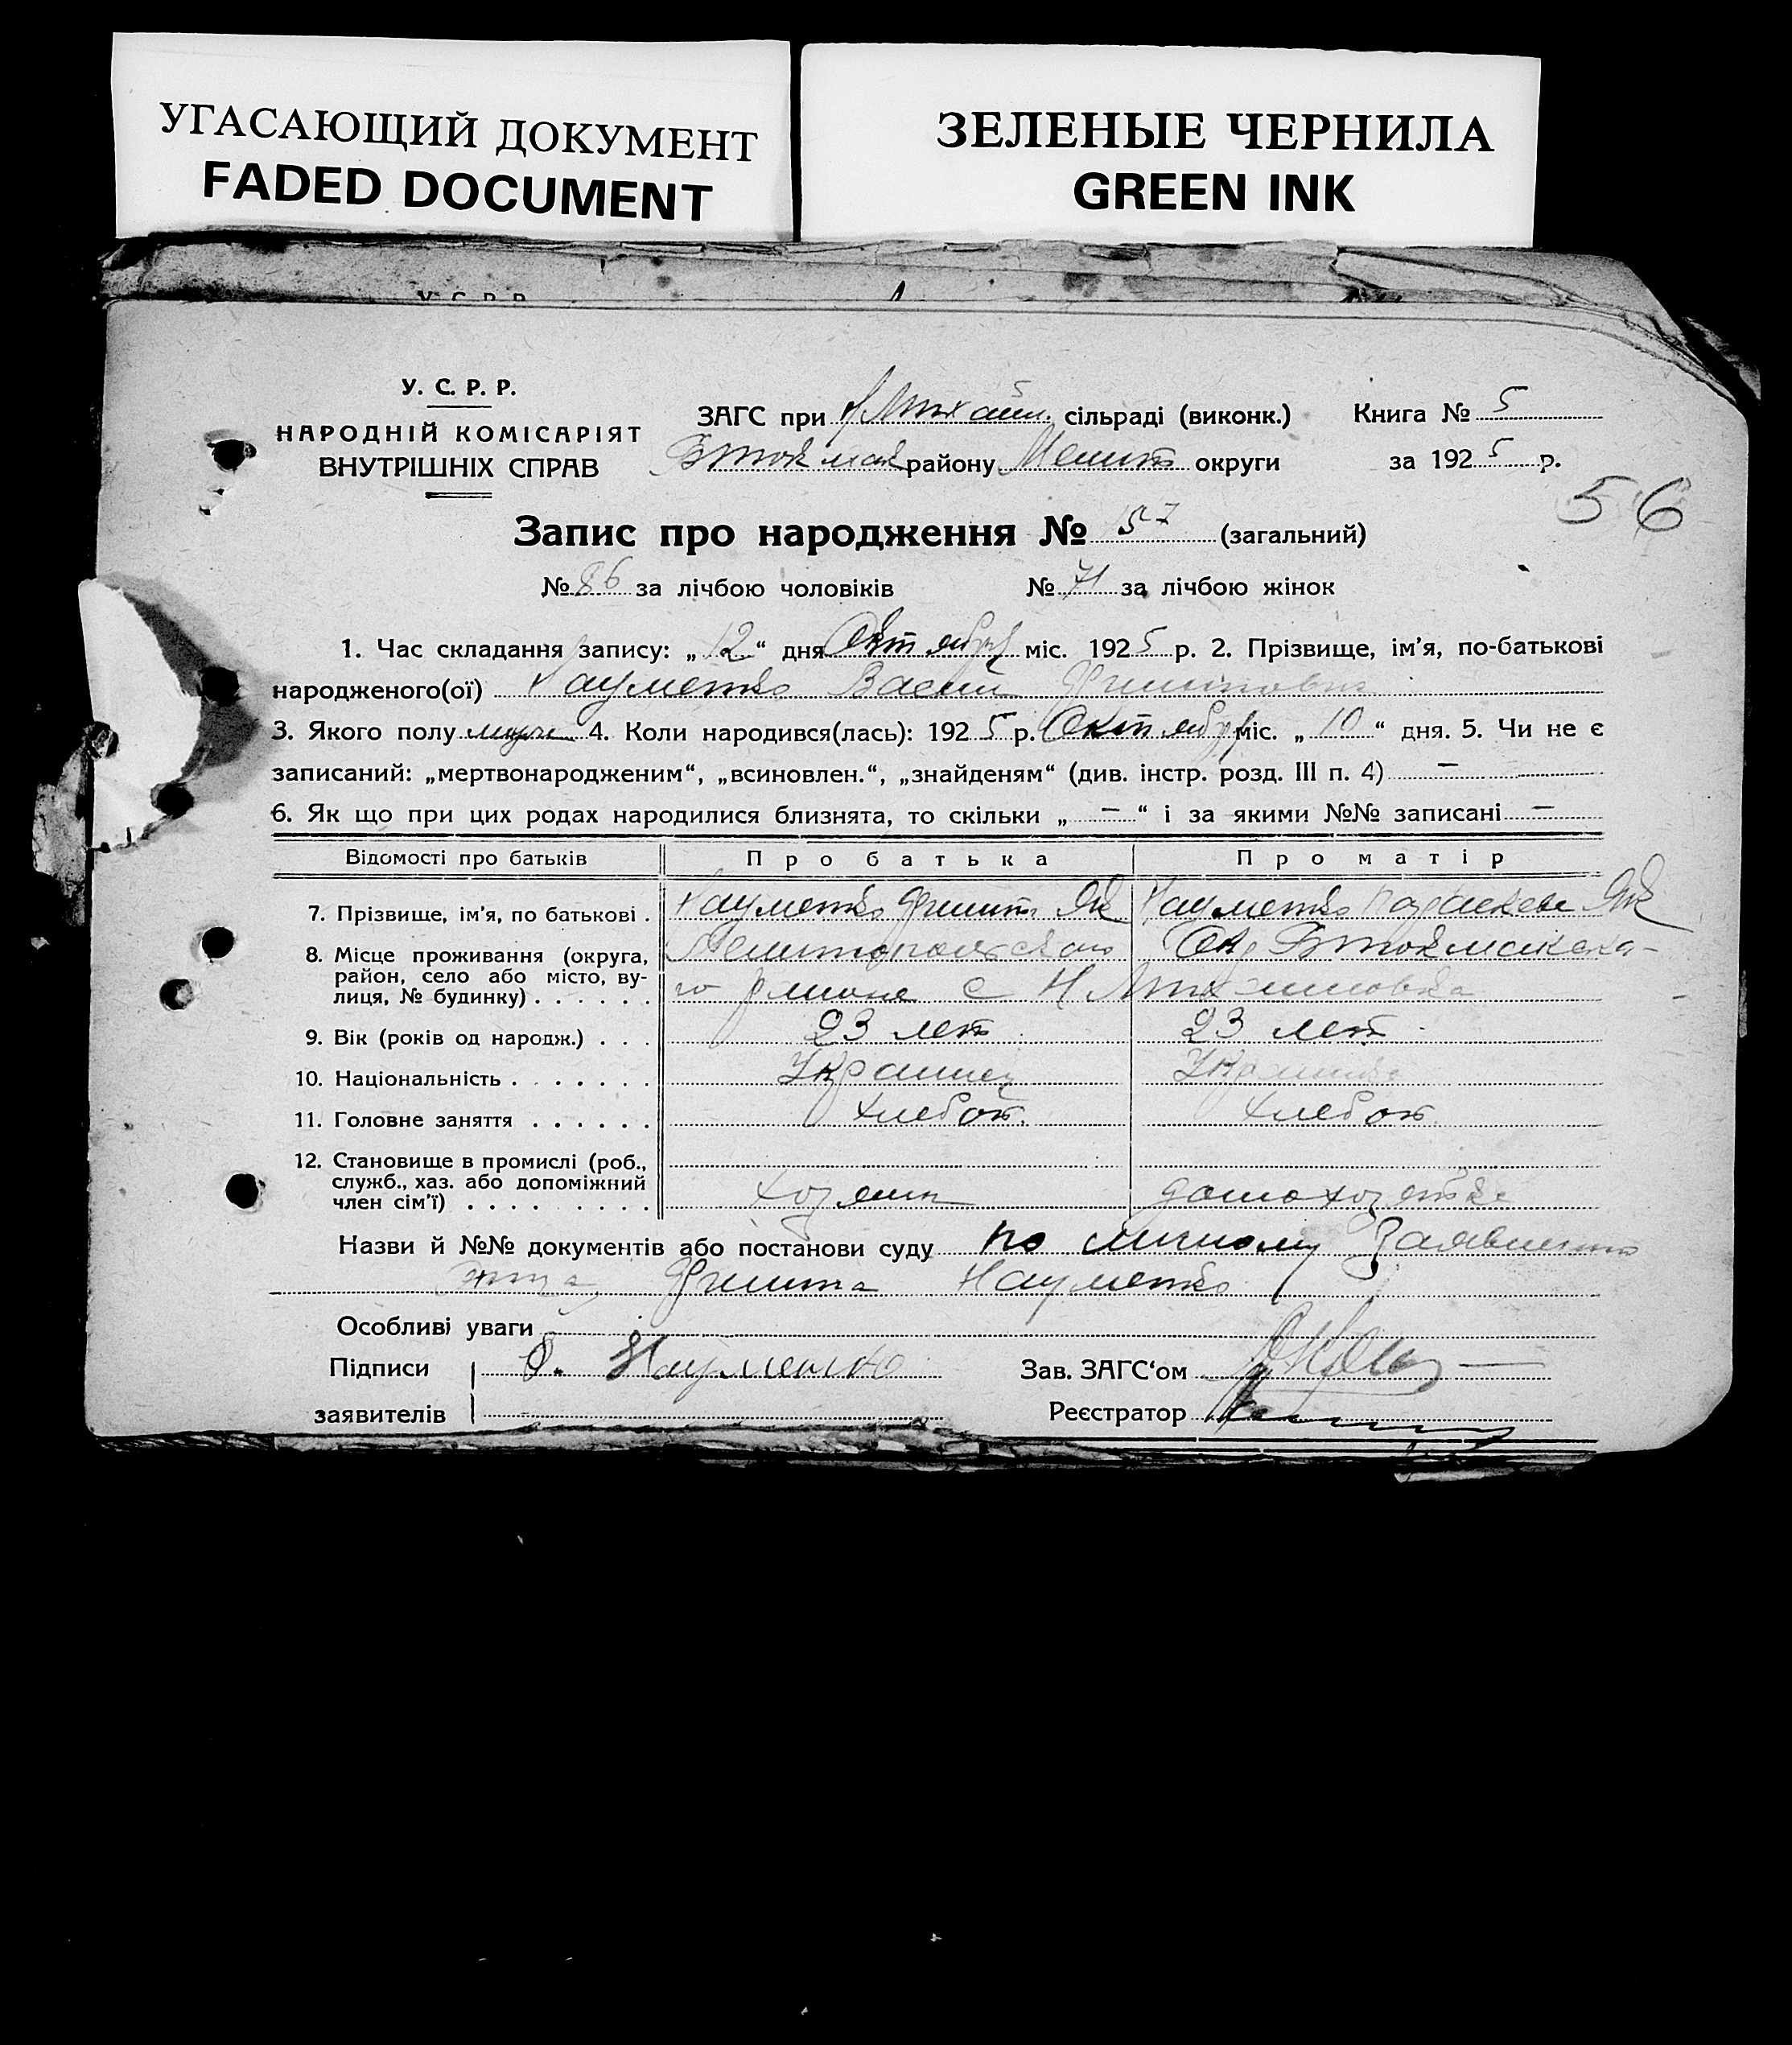 УГАСАЮЩИЙ ДОКУМЕНТ
FADED DOCUMENT
ЗЕЛЕНЫЕ ЧЕРНИЛА
GREEN INK
У. С. Р. Р.
У. С. Р. Р.
НАРОДНІЙ КОМІСАРІЯТ
ВНУТРІШНІХ СПРАВ
ЗАГС при Н Михайл. сільраді (виконк.) Книга № 5
Бтокмак району Мелит округи за 1925 р.
56
Запис про народження № 157 (загальний)
№ 86 за лічбою чоловіків № 71 за лічбою жінок
1. Час складання запису: „12“ дня Октября міс. 1925 р. 2. Прізвище, ім’я, по-батькові
народженого(ої) Науменко Васил Филипович
3. Якого полу муж 4. Коли народився(лась): 1925 р. Октября міс. „10“ дня. 5. Чи не є
записаний: „мертвонародженим“, „всиновлен.“, „знайденям“ (див. інстр. розд. III п. 4) —
6. Як що при цих родах народилися близнята, то скільки „—“ і за якими №№ записані —
Відомості про батьків Про батька Про матір
7. Прізвище, ім’я, по батькові . Науменко Филип Як Науменко Параскева Як
8. Місце проживання (округа, район, село або місто, вулиця, № будинку) . . . . . . Мелитопольского Окр Бтокмакско-
го района с Н Михайловка
9. Вік (років од народж.) . . . 23 лет 23 лет.
10. Національність . . . . . . . Украинец Украинка
11. Головне заняття . . . . . . Хлебоп. Хлебоп.
12. Становище в промислі (роб., служб., хаз. або допоміжний член сім’ї) . . . . . . . . хозяин домохозяйка
Назви й №№ документів або постанови суду по личному Заявлению
отца Филипа Науменко
Особливі уваги
Підписи Ф. Науменко Зав. ЗАГС‘ом
заявителів Реєстратор